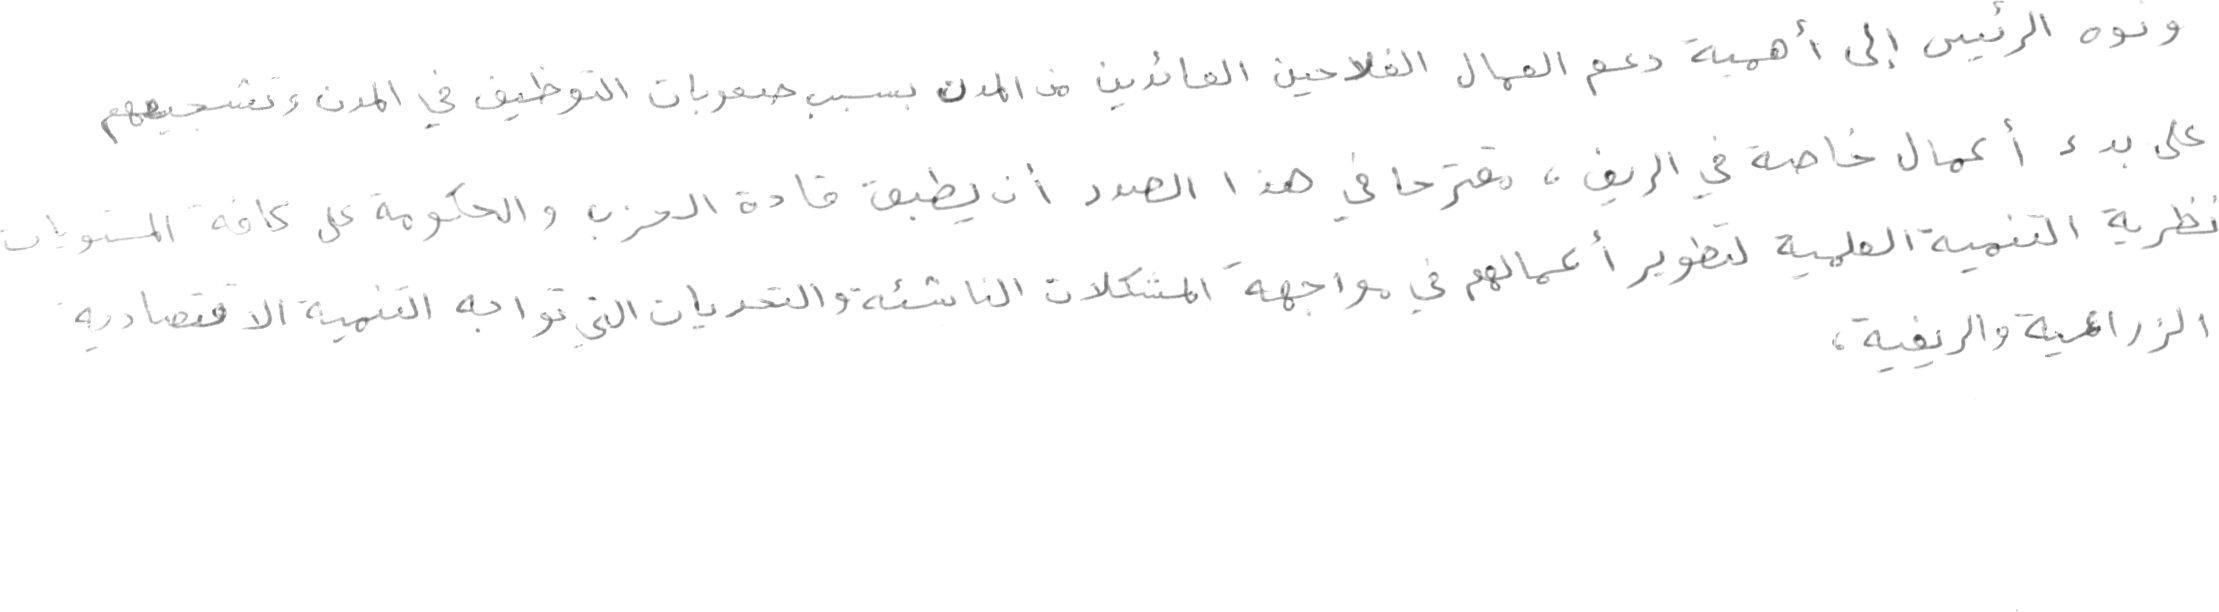 ونوه الرئيس إلى أهمية دعم العمال الفلاحين العائدين من المدن بسبب صعوبات التوظيف في المدن وتشجيعهم
على بدء أعمال خاصة في الريف، مقترحا في هذا الصدد أن يطبق قادة الحزب والحكومة على كافة المستويات
نظرية التنمية العلمية لتطوير أعمالهم في مواجهة المشكلات الناشئة والتحديات التي تواجه التنمية الاقتصادية
الزراعية والريفية،